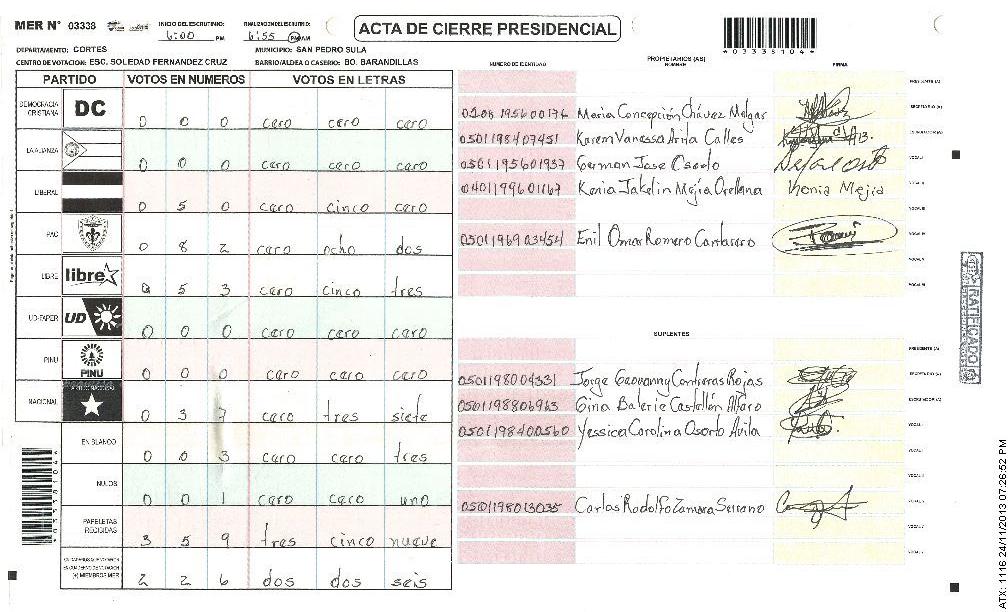 MER N° 03338
INICIO DEL ESCRUTINIO:
6:00 PM
FINALIZACION DEL ESCRUTINIO:
6:55 PM AM
ACTA DE CIERRE PRESIDENCIAL
*03338104*
DEPARTAMENTO: CORTES
MUNICIPIO: SAN PEDRO SULA
CENTRO DE VOTACION: ESC. SOLEDAD FERNANDEZ CRUZ
BARRIO/ALDEA O CASERIO: BO. BARANDILLAS
PARTIDO VOTOS EN NUMEROS VOTOS EN LETRAS
DEMOCRACIA CRISTIANA DC 0 0 0 cero cero cero
LA ALIANZA 0 0 0 cero cero cero
LIBERAL 0 5 0 cero cinco cero
PAC 0 8 2 cero ocho dos
LIBRE libre 0 5 3 cero cinco tres
UD-FAPER UD 0 0 0 cero cero cero
PINU PINU 0 0 0 cero cero cero
NACIONAL 0 3 7 cero tres siete
EN BLANCO 0 0 3 cero cero tres
NULOS 0 0 1 cero cero uno
PAPELETAS RECIBIDAS 3 5 9 tres cinco nueve
(+) MIEMBROS MER 2 2 6 dos dos seis
NUMERO DE IDENTIDAD
PROPIETARIOS (AS)
NOMBRE
FIRMA
PRESIDENTE (A)
Maria Concepción Chávez Melgar SECRETARIO (A)
0501198407451 Karem Vanessa Avila Calles ESCRUTADOR (A)
0501195601937 German Jose Osorto VOCAL I
0401199601167 Kenia Jakelin Mejia Orellana Kenia Mejia VOCAL II
VOCAL III
0501196903454 Enil Omar Romero Cantarero VOCAL IV
VOCAL V
VOCAL VI
SUPLENTES
PRESIDENTE (A)
0501198004331 Jorge Geovanny Contreras Rojas SECRETARIO (A)
0501198806963 Gina Balerie Castellón Alfaro ESCRUTADOR (A)
0501198400560 Yessica Carolina Osorto Avila VOCAL I
VOCAL II
VOCAL III
0501198013035 Carlos Rodolfo Zamora Serrano
RATIFICADO
ATX: 1116 24/11/2013 07:26:52 PM